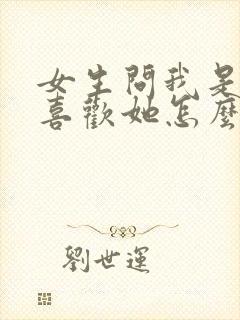 女生問我是
喜歡她怎麼
劉世運